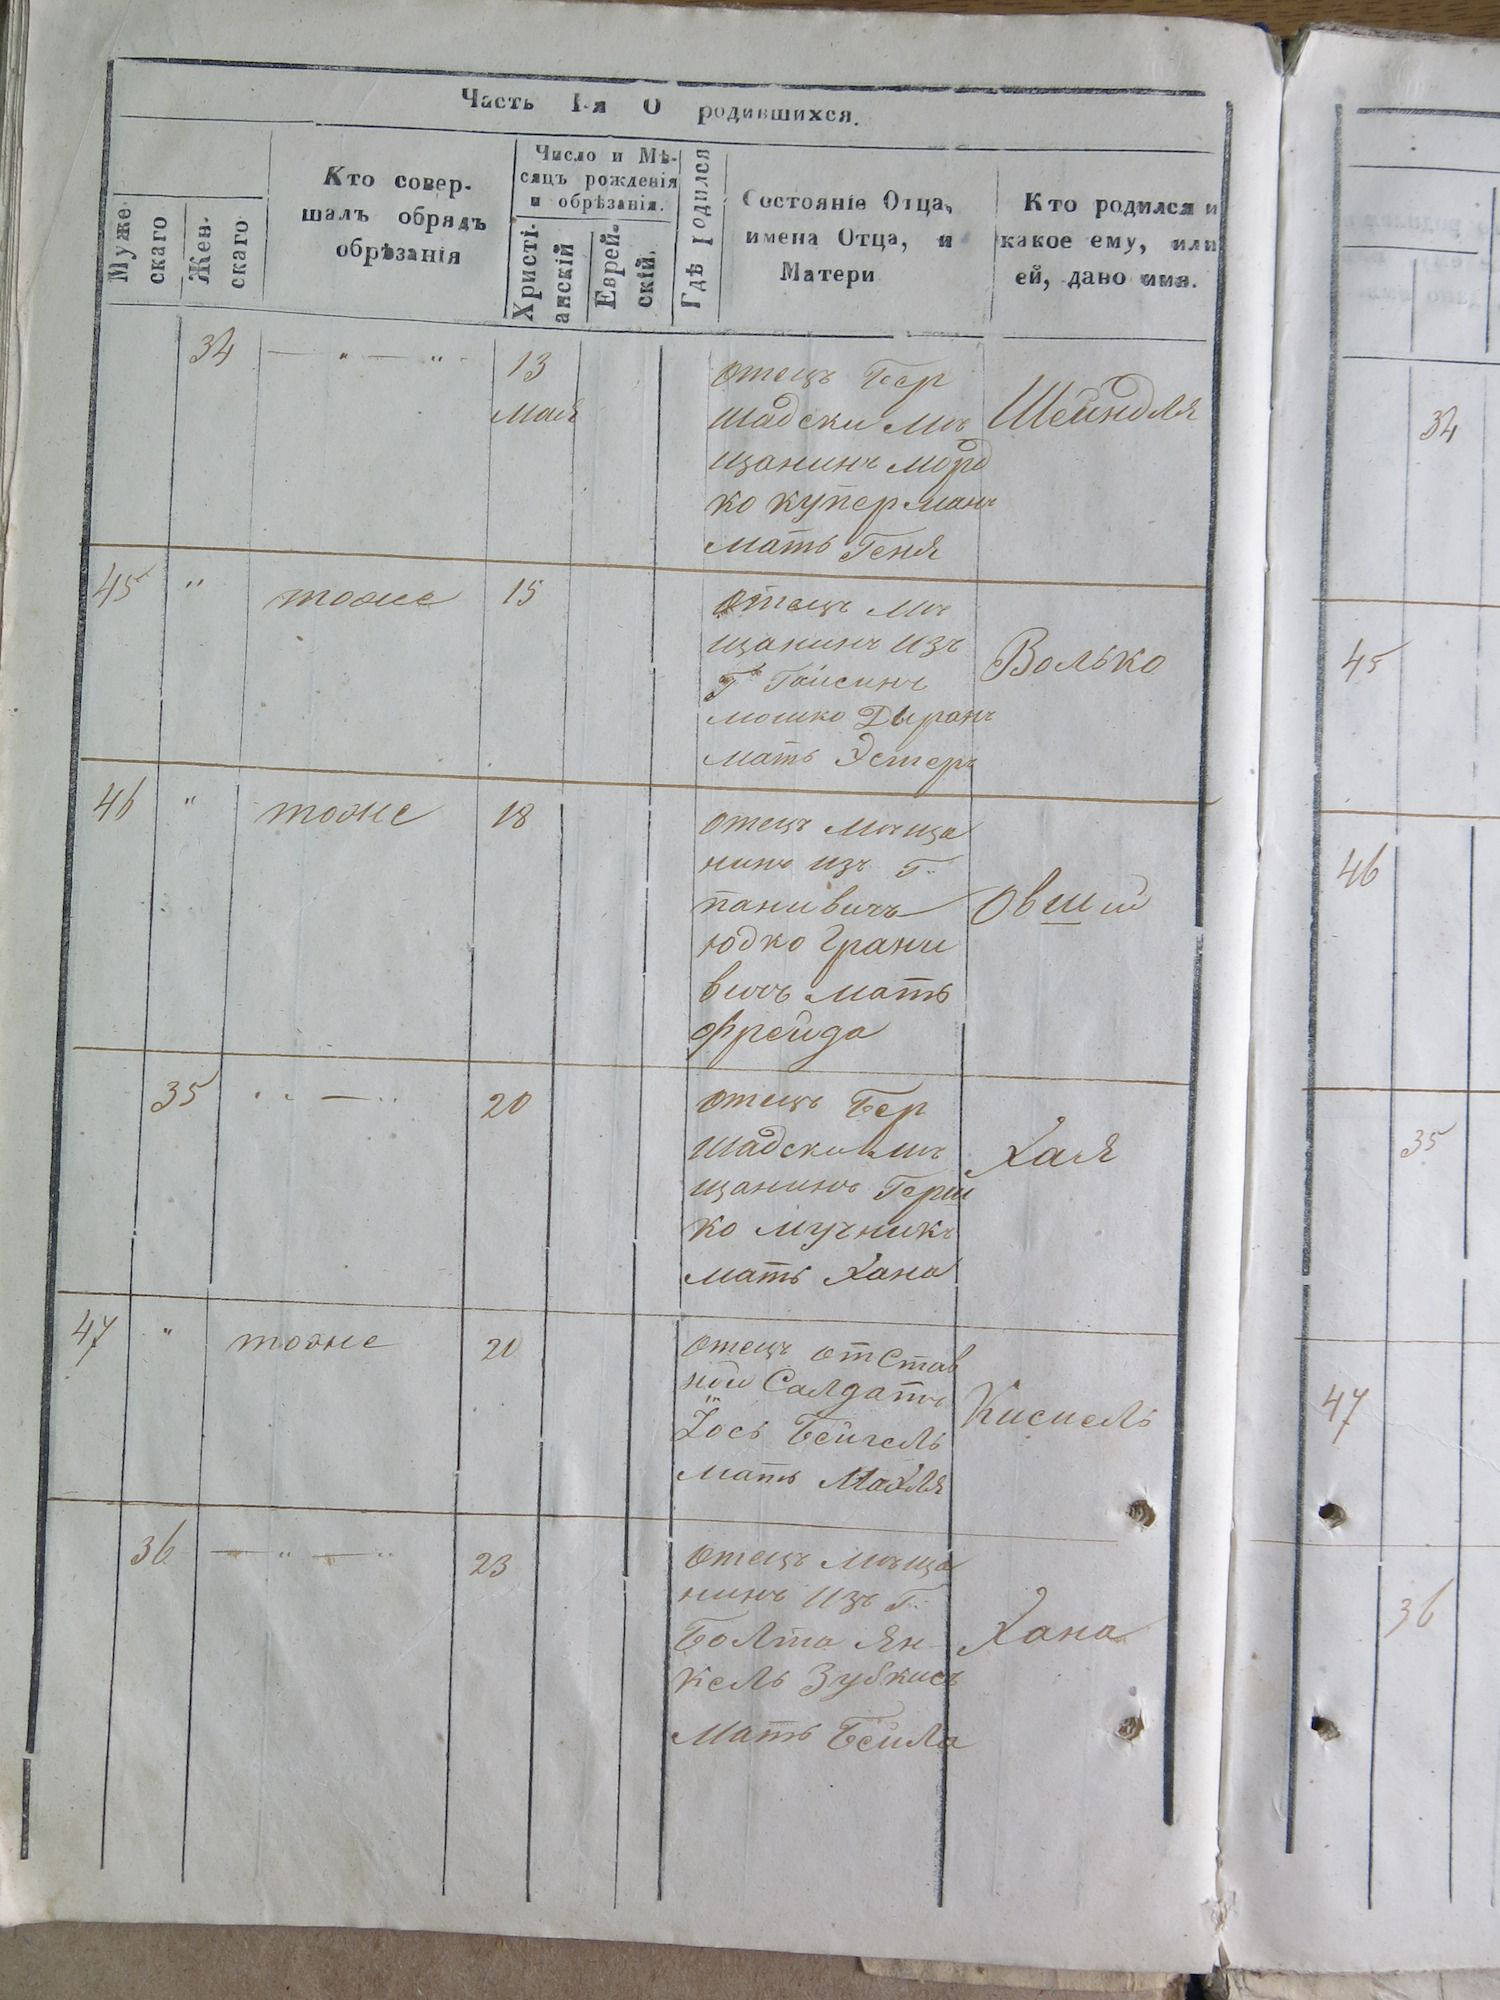 Часть I-я О родившихся.
Муже
скаго
Жен-
скаго
Кто совер-
шалъ обрядъ
обрѣзанія
Число и Мѣ-
сяцъ рожденія
и обрѣзанія.
Христі-
анскій
Еврей-
скій.
Гдѣ родился
Состояніе Отца,
имена Отца, и
Матери
Кто родился и
какое ему, или
ей, дано имя.
34 — " — " 13
мая
отецъ Бер
шадски мѣ
щанинъ морд
ко куперманъ
мать Геня
Шейндля
45 " тоже 15
отецъ мѣ
щанинъ изъ
Г Гайсинъ
мошко Дыранъ
мать Эстеръ
Волько
46 " тоже 18
отецъ мѣща
нинъ изъ Г.
паневичъ
юдко Грани
вичъ мать
Фрейда
Овший
35 " — " 20
отецъ Бер
шадски мѣ
щанинъ Герш
ко мучникъ
мать Хана
Хая
47 " тоже 20
отецъ отстав
ной Салдатъ
Іось Бейгель
мать Махля
Кисиель
36 — " — " 23
отецъ мѣща
нинъ изъ Г.
Болта Ян-
кель Зубкисъ
Мать Бейла
Хана
34
45
46
35
47
36